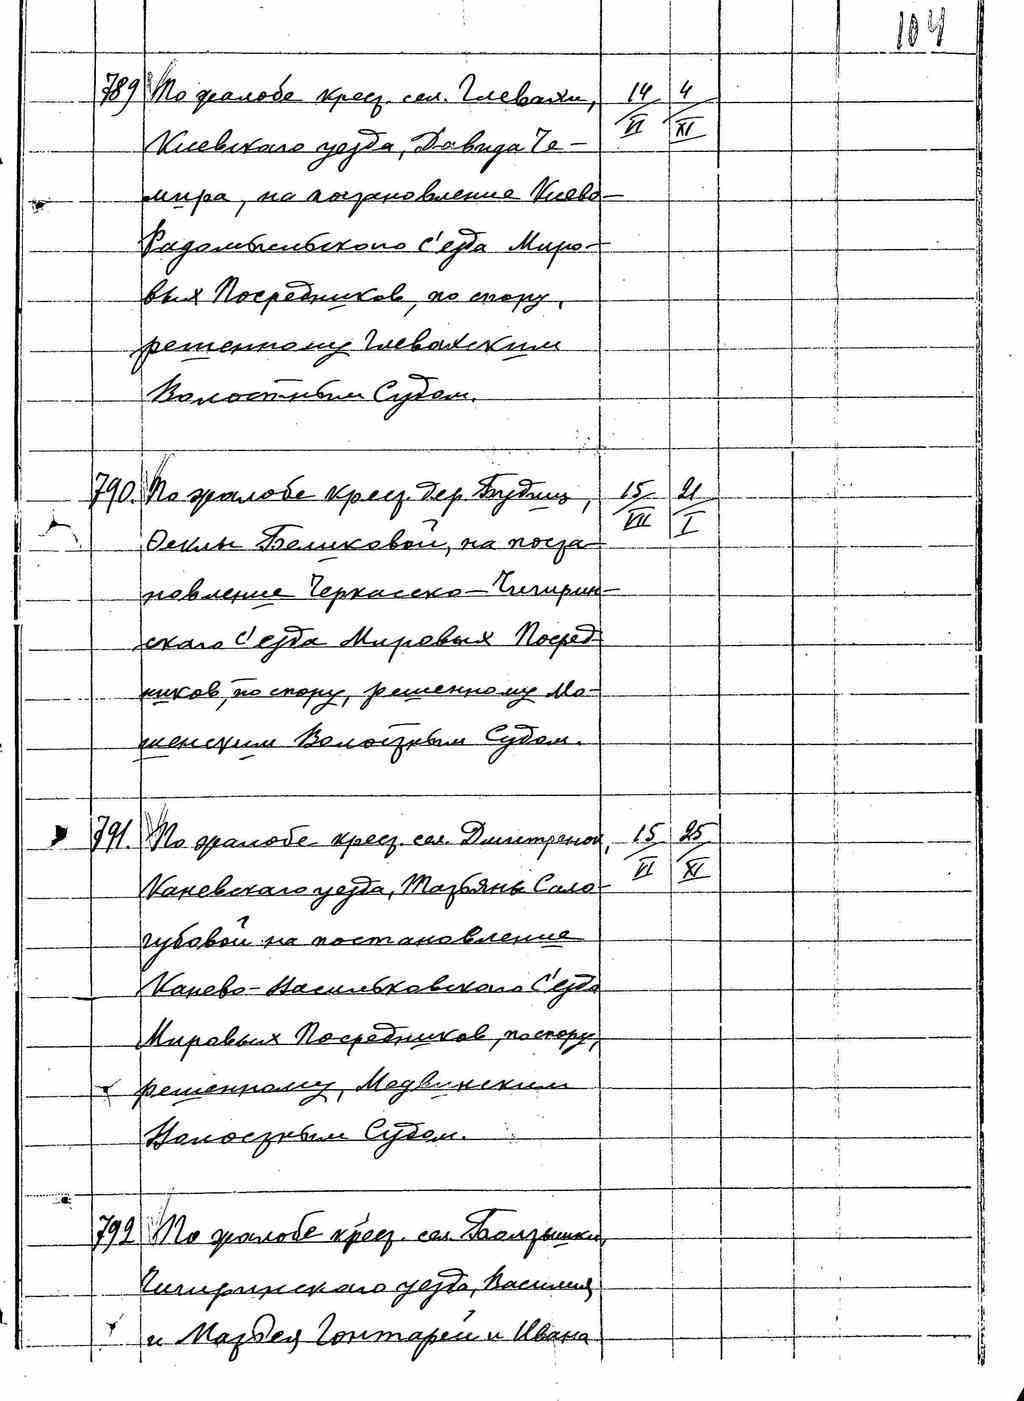 104
789 По жалобе крест. сел. Глевахи, 14/VI 4/XI
Киевского уезда, Давида Че-
мира, на постановление Киево-
Радомысльского с'езда Миро-
вых Посредников, по спору,
решенному Глевахским
Волостным Судом.
790. По жалобе крест. дер. Будищ, 15/VII 21/I
Феклы Беликовой, на поста-
новление Черкасско-Чигирин-
ского с'езда Мировых Посред-
ников, по спору, решенному Мо-
шенским Волостным Судом.
791. По жалобе крест. сел. Дмитренок, 15/VI 25/XI
Каневского уезда, Татьяны Соло-
губовой на постановление
Канево-Васильковского С'езда
Мировых Посредников, по спору,
решенному, Медвинским
Волостным Судом.
792 По жалобе крест. сел. Болтышки,
Чигиринского уезда, Василия
и Матвея Гонтарей и Ивана